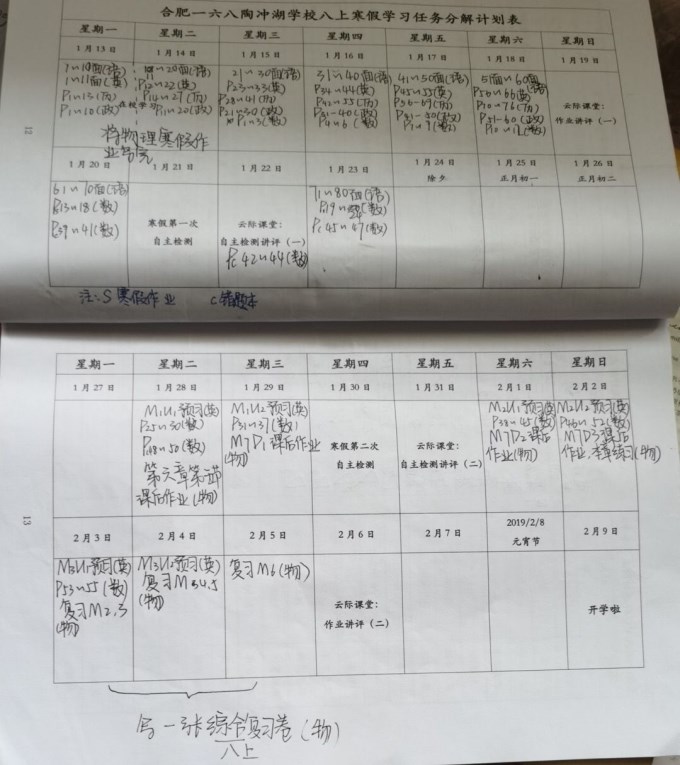 合肥一六八陶冲湖学校八上寒假学习任务分解计划表
星期一 星期二 星期三 星期四 星期五 星期六 星期日
1月13日 1月14日 1月15日 1月16日 1月17日 1月18日 1月19日
21~30面(语) 31~40面(语) 41~50面(语) 51~60面
P12~22(英) P23~33(英) P34~44(英) P45~55(英) P56~66(英)
P1~13(历) P14~27(历) P28~41(历) P42~55(历) P56~69(历) P70~76(历)
P1~10(政) 在校学习 P11~20(政) P21~30(政) P31~40(政) P41~50(政) P51~60(政)
P1~3(数) P4~6(数) P7~9(数) P10~12(数)
云际课堂:
作业讲评(一)
将物理寒假作
业写完
1月20日 1月21日 1月22日 1月23日 1月24日 1月25日 1月26日
除夕 正月初一 正月初二
61~70面(语)
P13~18(数)
P39~41(数)
寒假第一次
自主检测
云际课堂:
自主检测讲评(一)
Pc42~44(数)
71~80面(语)
Pc45~47(数)
注:S寒假作业 C错题本
12
星期一 星期二 星期三 星期四 星期五 星期六 星期日
1月27日 1月28日 1月29日 1月30日 1月31日 2月1日 2月2日
M1U1预习(英)
P25~30(数)
P48~50(数)
第六章第一节
课后作业(物)
M1U2预习(英)
P31~37(数)
M7D1课后作业
(物)
寒假第二次
自主检测
云际课堂:
自主检测讲评(二)
M2U1预习(英)
P38~45(数)
M7D2课后
作业(物)
M2U2预习(英)
P46~52(数)
M7D3课后
作业,本章练习(物)
13
2月3日 2月4日 2月5日 2月6日 2月7日 2019/2/8 2月9日
元宵节
M3U1预习(英)
P53~55(数)
复习M2,3
(物)
M3U2预习(英)
复习M3,4,5
(物)
复习M6(物)
云际课堂:
作业讲评(二)
开学啦
写一张综合复习卷(物)
八上